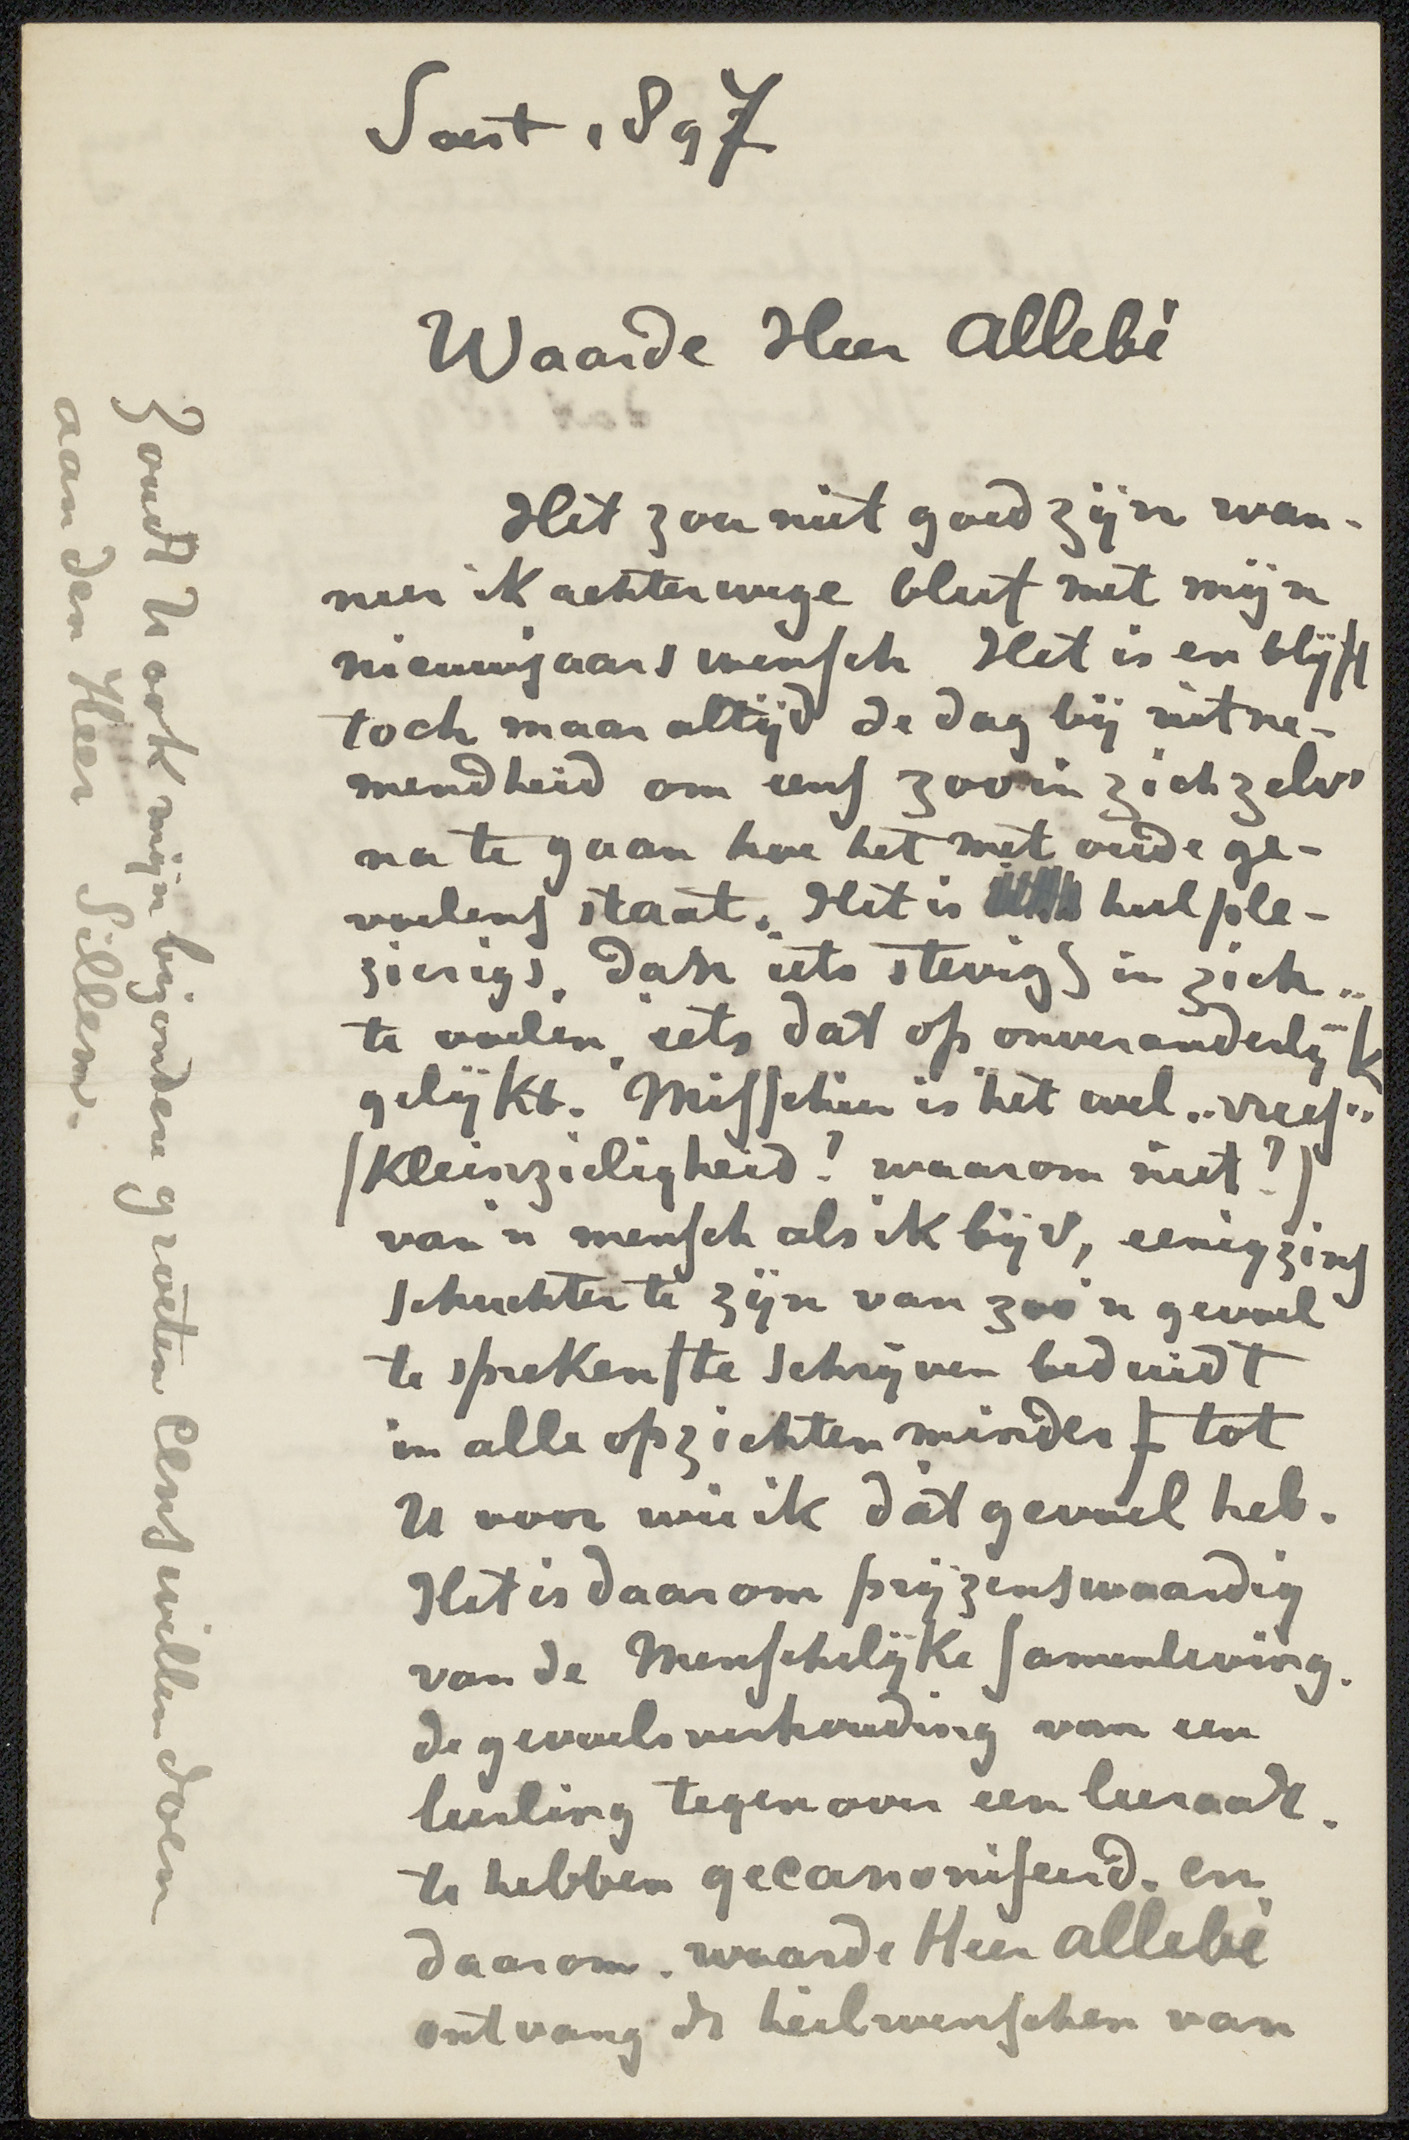 Soest 1897
Waarde Heer Allebé
Het zou niet goed zijn wan-
neer ik achterwege bleef met mijn
nieuwjaars wensch Het is en blijft
toch maar altijd de dag bij uitne-
mendheid om eens zoo in zich zelv'
na te gaan hoe het met oude ge-
voelens staat. Het is heel ple-
zierigs. dan iets stevigs in zich..
te voelen iets dat op onveranderlijk
gelijkt. Misschien is het wel „vrees"
(Kleinzieligheid! waarom niet?)
van 'n mensch als ik bijv, eenigzins
schuchter te zijn van zoo'n gevoel
te spreken /te schrijven beduidt
in alle opzichten minder/ tot
U voor wie ik dàt gevoel heb.
Het is daarom prijzenswaardig
van de Menschelijke samenleving.
de gevoelsverhouding van een
leerling tegenover een leeraar.
te hebben gecanoniseerd. en
daarom. waarde Heer Allebé
ontvang de heilwenschen van
Zoudt U ook mijn bijzondere groeten eens willen doen
aan den Heer Sillem.